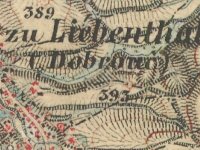 389
zu Liebenthal
(Dobrau)
393